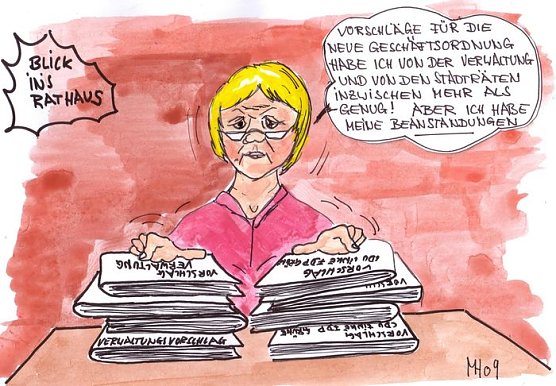 BLICK
INS
RATHAUS
VORSCHLÄGE FÜR DIE
NEUE GESCHÄFTSORDNUNG
HABE ICH VON DER VERWALTUNG
UND VON DEN STADTRÄTEN
INZWISCHEN MEHR ALS
GENUG! ABER ICH HABE
MEINE BEANSTANDUNGEN
VORSCHLAG
VERWALTUNG
VERWALTUNGSVORSCHLAG
VORSCHLAG
CDU LINKE FDP GRÜN
VORSCHLAG
CDU LINKE FDP GRÜNE
MH09